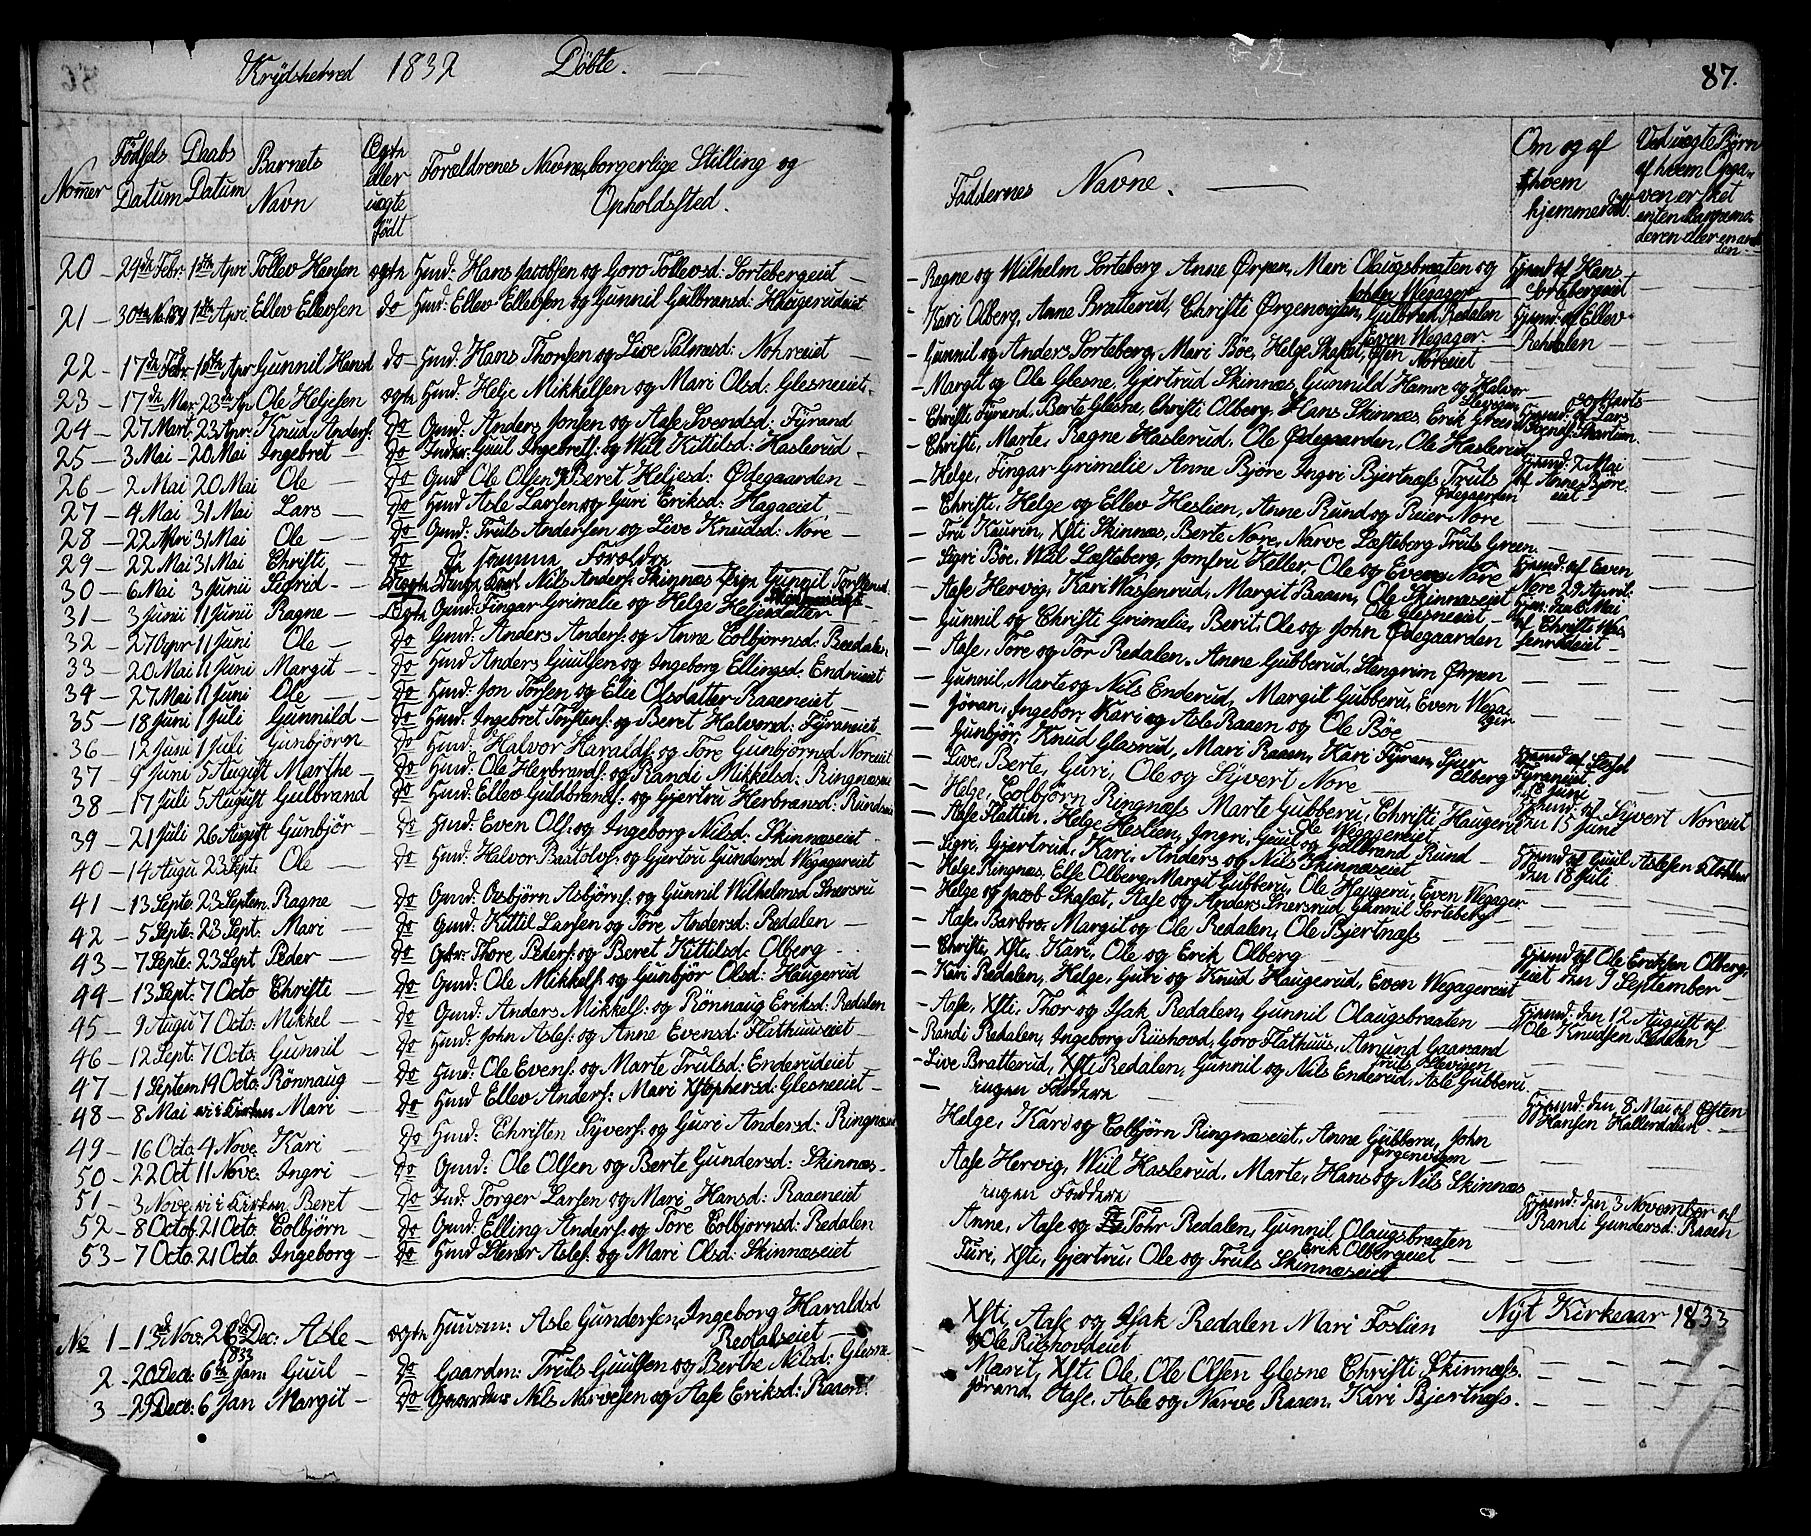 Krydsherred 1832 Döbte.
87.
Nomer
Födsels Datum
Daabs Datum
Barnets Navn
Ægte eller uægte födt
Forældrenes Navne, borgerlige Stilling og Opholdsted.
Faddernes Navne.
Om og af hvem hjemmedöbt
Ved uægte Börn af hvem Opgaven er sket enten Barnemoderen eller en anden
20 – 24de Febr: 1ste Apri Tollev Hansen ægte Hmd: Hans Jacobsen og Goro Tollevsd: Sortebergeiet – Ragne og Wilhelm Sorteberg Anne Ørpen, Mari Olaugsbraaten og Hjemd af Hans Sortebergeiet
21 – 30te 1ste Apri Ellev Ellevsen do Hmd: Ellev Ellevsen og Gunnil Gulbransd: Haugerudeiet – Kari Olberg, Anne Bratterud, Christi Ørgenvigen, Gulbrad Redalen Hjemd: af Ellev Redalen
22 – 17de Febr 1ste Apr Gunnil Hansd do Hmd: Hans Thorsen og Live Palmesd: Nohreeiet – Gunnil og Anders Sorteberg, Mari Böe, Helge Skafset, Even Wegager Noreeiet
23 – 17de Mar 23de Apr Ole Heljesen ægte Hmd: Helje Mikkelsen og Mari Olsd: Glesneeiet. – Margit og Ole Glesne, Gjertrud Skinnæs, Gunnild Hamre og Halvor
24 – 27 Mart. 23 Apr: Knud Andersf. do Gmd: Anders Jonsen og Aase Svendsd: Fyrand – Christi Fyrand, Berte Glesne, Christi Olberg, Hans Skinnæs Erik Green Hjemd: af Lars
25 – 3 Mai – 20 Mai Ingebret – do Inder: Guul Ingebretf: og Wiil Kittilsd: Haslerud – Christi, Marte, Ragne Haslerud, Ole Ødegaarden, Ole Haslerud
26 – 2 Mai 20 Mai Ole – do Gmd Ole Olsen og Beret Heljesd: Ødegaarden – – Helge, Fingar Grimelie Anne Björe Ingri Bjertnæs Truls Ødegaarden Hjemd: 2 Mai af Anne Björeeiet
27 – 4 Mai 31 Mai Lars – do Hmd Asle Larsen og Guri Eriksd: Hagaeiet – – Christi, Helge og Ellev Heslien, Anne Rund og Reier Nore
28 – 22 Apri 31 Mai Ole – do Gmd: Truls Andersen og Live Knudsd: Nore – – Fru Kaurin, Xsti Skinnæs, Berte Nore, Narve Læsteberg Truls Green
29 – 22 Mai 31 Mai Christi – do De samme Forældre – Sigri Böe, Wiil Læsteberg, Jomfru Keller Ole og Even Nore Hjemd: af Even Nore 29 Aprill
30 – 6 Mai 3 Junii Sigrid – Uægte Nils Andersf: Skinnæs Pige Gunnil Torstensd – Aase Hervig, Kari Wassenrud, Margit Raaen, Ole Skinnæseiet Hjem: den 6 Mai
31 – 3 Junii 11 Junii Ragne – Ægte Gmd: Fingar Grimelie og Helge Heljesdatter – – Gunnil og Christi Grimelie, Berit, Ole og John Ødegaarden af Christi
32 – 27 Apr 11 Juni Ole – do Gmd: Anders Andersf: og Anne Colbjörnsd: Reedalen – Aase, Tore og Tor Redalen, Anne Gubberud, Stengrim Ørpen
33 – 20 Mai 11 Juni Margit – do Hmd Anders Guulsen og Ingeborg Ellingsd: Endrueiet – Gunnil, Marte og Nils Enderud, Margit Gubberu, Even Wegager
34 – 27 Mai 11 Juni Ole – do Hmd: Jon Torsen og Elie Olsdatter Raaeneiet – – Jöran, Ingebor, Kari og Asle Raaen og Ole Böe
35 – 18 Juni 1 Juli Gunnild – do Hmd: Ingebret Torstensf: og Beret Halvorsd: Fyraneiet – Gunbjör, Knud Glasrud, Mari Raaen, Kari Fyran, Sjur Olberg
36 – 12 Juni 1 Juli Gunbjörn – do Hmd: Halvor Haraldsf: og Tore Gunbjörnsd Noreeiet – Live, Berte, Guri, Ole og Syvert Nore Hjemd af
37 – 9 Juni 5 August Marthe – do Hmd: Ole Herbrandsf: og Randi Mikkelsd: Ringnæseiet – Helge, Colbjörn Ringnæss Marte Gubberu, Christi Haugerie Hjemd: af Syvert Noreeiet den 15 Juni
38 – 17 Juli 5 August Gulbrand do Hmd: Ellev Guldbrandsf: og Gjertru Herbransd: Rundeeiet – Aase Flattin, Helge Heslien, Ingri, Guul og Gulbrand Rund
39 – 21 Juli 26 August Gunbjör – do Hmd: Even Olsf: og Ingeborg Nilsd: Skinnæseiet – – Sigri, Gjertrud, Kari, Anders og Nils Skinnæseiet
40 – 14 Augu 23 Sept. Ole – do Hmd: Halvor Baatolvsf: og Gjertru Gundersd Wegagereiet – Helge Ringnæs, Else Olberg, Margit Gubberu, Ole Haugerei, Even Wegager Hjemd af Guul Aslesen den 18 Juli
41 – 13 Septe: 23 Septem. Ragne – do Gmd: Osbjörn Asbjörnsf: og Gunnil Wilhelmsd Snersru – Helge og Jacob Skafset, Aase og Anders Snersrud, Gunnil Sorteberg
42 – 5 Septe: 23 Sept. Mari – do Gmd: Kittil Larsen og Tore Andersd: Redalen – – Aase, Barbro, Margit og Ole Redalen, Ole Bjertnæss
43 – 7 Septe: 23 Sept Peder – do Thore Pedersf: og Beret Kittilsd: Olberg – – Christi, Xsti, Kari, Ole og Erik Olberg Hjemd af Ole Eriksen Olbergeiet den 9 September
44 – 13 Sept: 7 Octo Christi – do Gmd: Ole Mikkelsf: og Gunbjör Olsd: Haugerud – Kari Redalen, Helge, Guri og Knud Haugerud, Even Wegagereiet
45 – 9 Augu 7 Octo: Mikkel – do Gmd: Anders Mikkelsf: og Rönnaug Eriksd: Redalen – Aase, Xsti, Thor og Isak Redalen, Gunnil Olaugsbraaten – Hjemd: den 12 August af Ole Knudsen Redalen –
46 – 12 Sept: 7 Octo: Gunnil – do Hmd: John Aslesf: og Anne Evensd: Flathuuseiet – Randi Redalen, Ingeborg Riishovd, Goro Flathuus, Amund Gaarand
47 – 1 Septem 14 Octo: Rönnaug – do Hmd: Ole Evensf: og Marte Trulsd: Enderudeiet – Live Bratterud, Xsti Redalen, Gunnil og Nils Enderud, Asle Gubberu
48 – 8 Mai vi i Kirken Mari – do Hmd Ellev Andersf: Mari Xstophersd: Glesneeiet – – ingen Faddere Hjemd: den 8 Mai af Østen Hansen
49 – 16 Octo. 4 Nove. Kari – do Hmd: Christen Syversf: og Guri Andersd: Ringnæseiet Helge, Kari og Colbjörn Ringnæseiet, Anne Gubberu, John Ørgenvigen
50 – 22 Oct 11 Nove. Ingri – do Gmd: Ole Olsen og Berte Gundersd: Skinnæs – Aase Hervig, Wiil Haslerud, Marte, Hans og Nils Skinnæs
51 – 3 Nove. vi i Kirken Beret – do Ind: Torger Larsen og Mari Hansd: Raaeneiet ingen Faddere Hjemd: den 3 November af Randi Gundersd: Raaen
52 – 8 Octof. 21 Octo. Colbjörn – do Gmd: Elling Andersf: og Tore Colbjörnsd: Redalen Anne, Aase og Tohr Redalen, Gunnil Olaugsbraaten Erik Olbergeiet
53 – 7 Octo. 21 Octo. Ingeborg – do Hmd Stener Aslesf: og Mari Olsd: Skinnæseiet Turi, Xsti, Gjertru, Ole og Truls Skinnæseiet
Nyt Kirkeaar 1833
No 1 – 1ste Nov: 26de Dec: Asle – ægte Huusm: Asle Gundersen, Ingeborg Haraldsd Redalseiet – Xsti, Aase og Isak Redalen Mari Foslien og Ole Riishovdeiet
2 – 20 Dec: 6te Jan: 1833 Guul – do Gaardm: Truls Guulsen og Berthe Nilsd: Glesne. Marit, Xsti Ole, Ole Olsen Glesne Christi Skinnæss.
3 – 29 Dece: 6 Jan Margit – do Nils Narvesen og Aase Eriksd: Raaen. Jörand, Aase, Asle og Narve Raaen, Kari Bjertnæss.